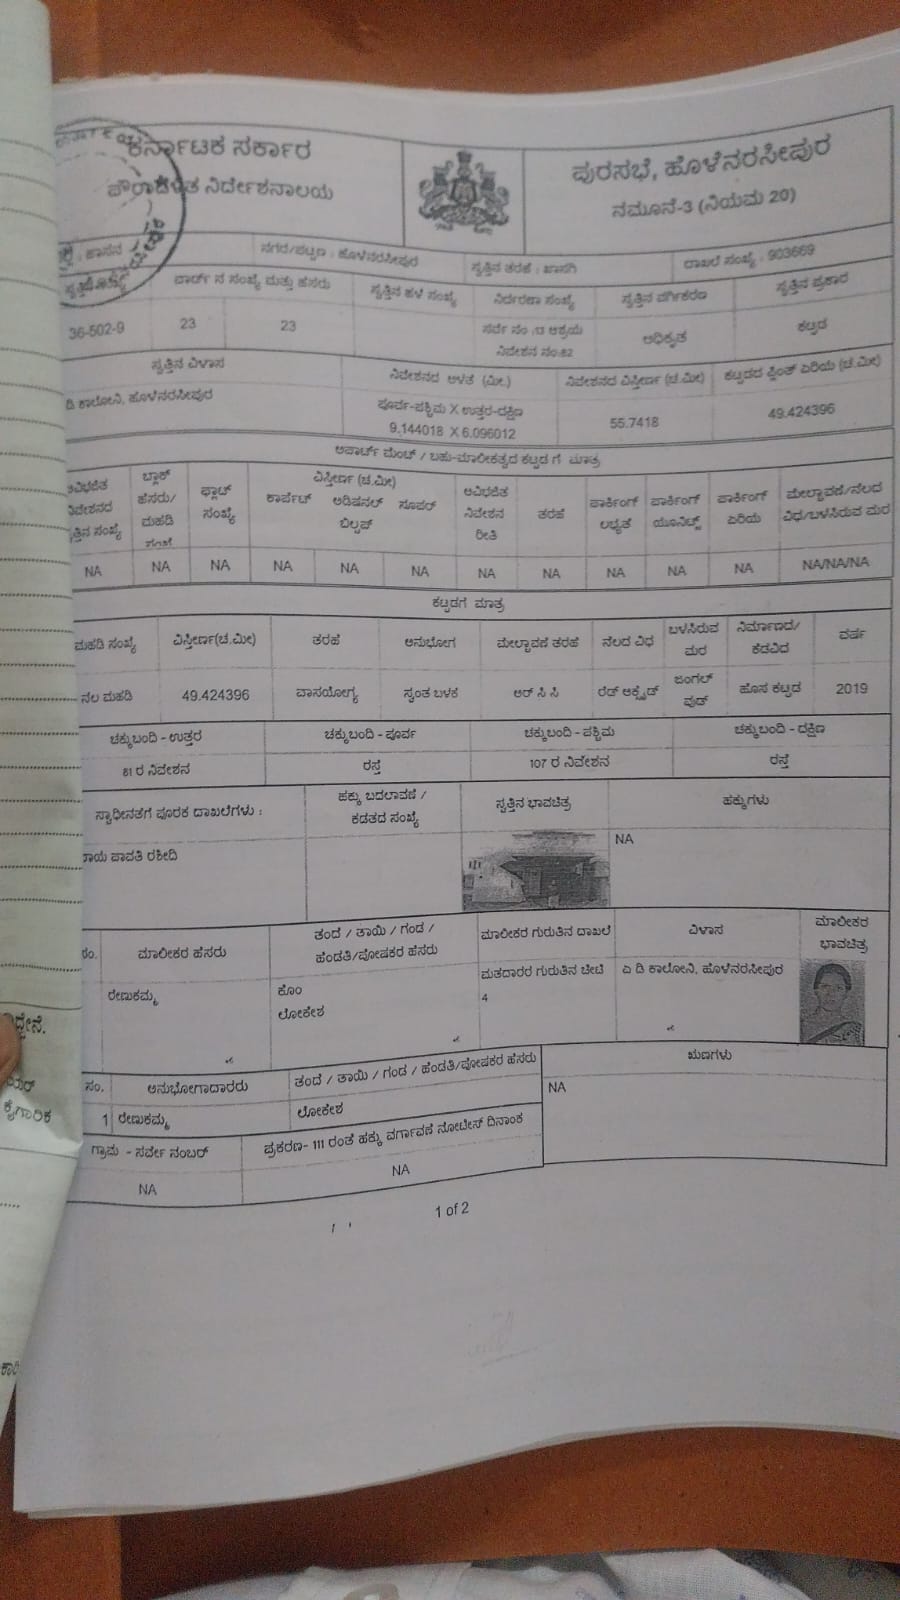 ಕರ್ನಾಟಕ ಸರ್ಕಾರ
ಪೌರಾಡಳಿತ ನಿರ್ದೇಶನಾಲಯ
ಪುರಸಭೆ, ಹೊಳೆನರಸೀಪುರ
ನಮೂನೆ-3 (ನಿಯಮ 20)
: ಹಾಸನ
ನಗರ/ಪಟ್ಟಣ : ಹೊಳೆನರಸೀಪುರ
ಸ್ವತ್ತಿನ ತರಹೆ : ಖಾಸಗಿ
ದಾಖಲೆ ಸಂಖ್ಯೆ : 903669
ವಾರ್ಡ್ ನ ಸಂಖ್ಯೆ ಮತ್ತು ಹೆಸರು
ಸ್ವತ್ತಿನ ಹಳೆ ಸಂಖ್ಯೆ
ನಿರ್ಧರಣಾ ಸಂಖ್ಯೆ
ಸ್ವತ್ತಿನ ವರ್ಗೀಕರಣ
ಸ್ವತ್ತಿನ ಪ್ರಕಾರ
36-502-9
23
23
ಸರ್ವೆ ನಂ :13 ಆಶ್ರಯ
ನಿವೇಶನ ನಂ:82
ಅಧಿಕೃತ
ಕಟ್ಟಡ
ಸ್ವತ್ತಿನ ವಿಳಾಸ
ನಿವೇಶನದ ಅಳತೆ (ಮೀ.)
ನಿವೇಶನದ ವಿಸ್ತೀರ್ಣ (ಚ.ಮೀ)
ಕಟ್ಟಡದ ಪ್ಲಿಂತ್ ಏರಿಯ (ಚ.ಮೀ)
ಡಿ ಕಾಲೋನಿ, ಹೊಳೆನರಸೀಪುರ
ಪೂರ್ವ-ಪಶ್ಚಿಮ X ಉತ್ತರ-ದಕ್ಷಿಣ
9.144018 X 6.096012
55.7418
49.424396
ಅಪಾರ್ಟ್ ಮೆಂಟ್ / ಬಹು-ಮಾಲೀಕತ್ವದ ಕಟ್ಟಡ ಗೆ ಮಾತ್ರ
ಅವಿಭಜಿತ
ನಿವೇಶನದ
ಸ್ವತ್ತಿನ ಸಂಖ್ಯೆ
ಬ್ಲಾಕ್
ಹೆಸರು/
ಮಹಡಿ
ಸಂಖ್ಯೆ
ಫ್ಲಾಟ್
ಸಂಖ್ಯೆ
ವಿಸ್ತೀರ್ಣ (ಚ.ಮೀ)
ಕಾರ್ಪೆಟ್
ಅಡಿಷನಲ್
ಬಿಲ್ಟಪ್
ಸೂಪರ್
ಅವಿಭಜಿತ
ನಿವೇಶನ
ರೀತಿ
ತರಹೆ
ಪಾರ್ಕಿಂಗ್
ಲಭ್ಯತೆ
ಪಾರ್ಕಿಂಗ್
ಯೂನಿಟ್ಸ್
ಪಾರ್ಕಿಂಗ್
ಏರಿಯ
ಮೇಲ್ಛಾವಣೆ/ನೆಲದ
ವಿಧ/ಬಳಸಿರುವ ಮರ
NA
NA
NA
NA
NA
NA
NA
NA
NA
NA
NA
NA/NA/NA
ಕಟ್ಟಡಗೆ ಮಾತ್ರ
ಮಹಡಿ ಸಂಖ್ಯೆ
ವಿಸ್ತೀರ್ಣ(ಚ.ಮೀ)
ತರಹೆ
ಅನುಭೋಗ
ಮೇಲ್ಛಾವಣಿ ತರಹೆ
ನೆಲದ ವಿಧ
ಬಳಸಿರುವ
ಮರ
ನಿರ್ಮಾಣದ/
ಕೆಡವಿದ
ವರ್ಷ
ನೆಲ ಮಹಡಿ
49.424396
ವಾಸಯೋಗ್ಯ
ಸ್ವಂತ ಬಳಕೆ
ಆರ್ ಸಿ ಸಿ
ರೆಡ್ ಆಕ್ಸೈಡ್
ಜಂಗಲ್
ವುಡ್
ಹೊಸ ಕಟ್ಟಡ
2019
ಚಕ್ಕುಬಂದಿ - ಉತ್ತರ
ಚಕ್ಕುಬಂದಿ - ಪೂರ್ವ
ಚಕ್ಕುಬಂದಿ - ಪಶ್ಚಿಮ
ಚಕ್ಕುಬಂದಿ - ದಕ್ಷಿಣ
81 ರ ನಿವೇಶನ
ರಸ್ತೆ
107 ರ ನಿವೇಶನ
ರಸ್ತೆ
ಸ್ವಾಧೀನತೆಗೆ ಪೂರಕ ದಾಖಲೆಗಳು :
ಹಕ್ಕು ಬದಲಾವಣೆ /
ಕಡತದ ಸಂಖ್ಯೆ
ಸ್ವತ್ತಿನ ಭಾವಚಿತ್ರ
ಹಕ್ಕುಗಳು
ರಾಯ ಪಾವತಿ ರಶೀದಿ
NA
ಸಂ.
ಮಾಲೀಕರ ಹೆಸರು
ತಂದೆ / ತಾಯಿ / ಗಂಡ /
ಹೆಂಡತಿ/ಪೋಷಕರ ಹೆಸರು
ಮಾಲೀಕರ ಗುರುತಿನ ದಾಖಲೆ
ವಿಳಾಸ
ಮಾಲೀಕರ
ಭಾವಚಿತ್ರ
ರೇಣುಕಮ್ಮ
ಕೊಂ
ಲೋಕೇಶ
ಮತದಾರರ ಗುರುತಿನ ಚೀಟಿ
4
ಎ ಡಿ ಕಾಲೋನಿ, ಹೊಳೆನರಸೀಪುರ
ಸಂ.
ಅನುಭೋಗಾದಾರರು
ತಂದೆ / ತಾಯಿ / ಗಂಡ / ಹೆಂಡತಿ/ಪೋಷಕರ ಹೆಸರು
ಋಣಗಳು
1
ರೇಣುಕಮ್ಮ
ಲೋಕೇಶ
NA
ಗ್ರಾಮ - ಸರ್ವೇ ನಂಬರ್
ಪ್ರಕರಣ- 111 ರಂತೆ ಹಕ್ಕು ವರ್ಗಾವಣೆ ನೋಟೀಸ್ ದಿನಾಂಕ
NA
NA
1 of 2